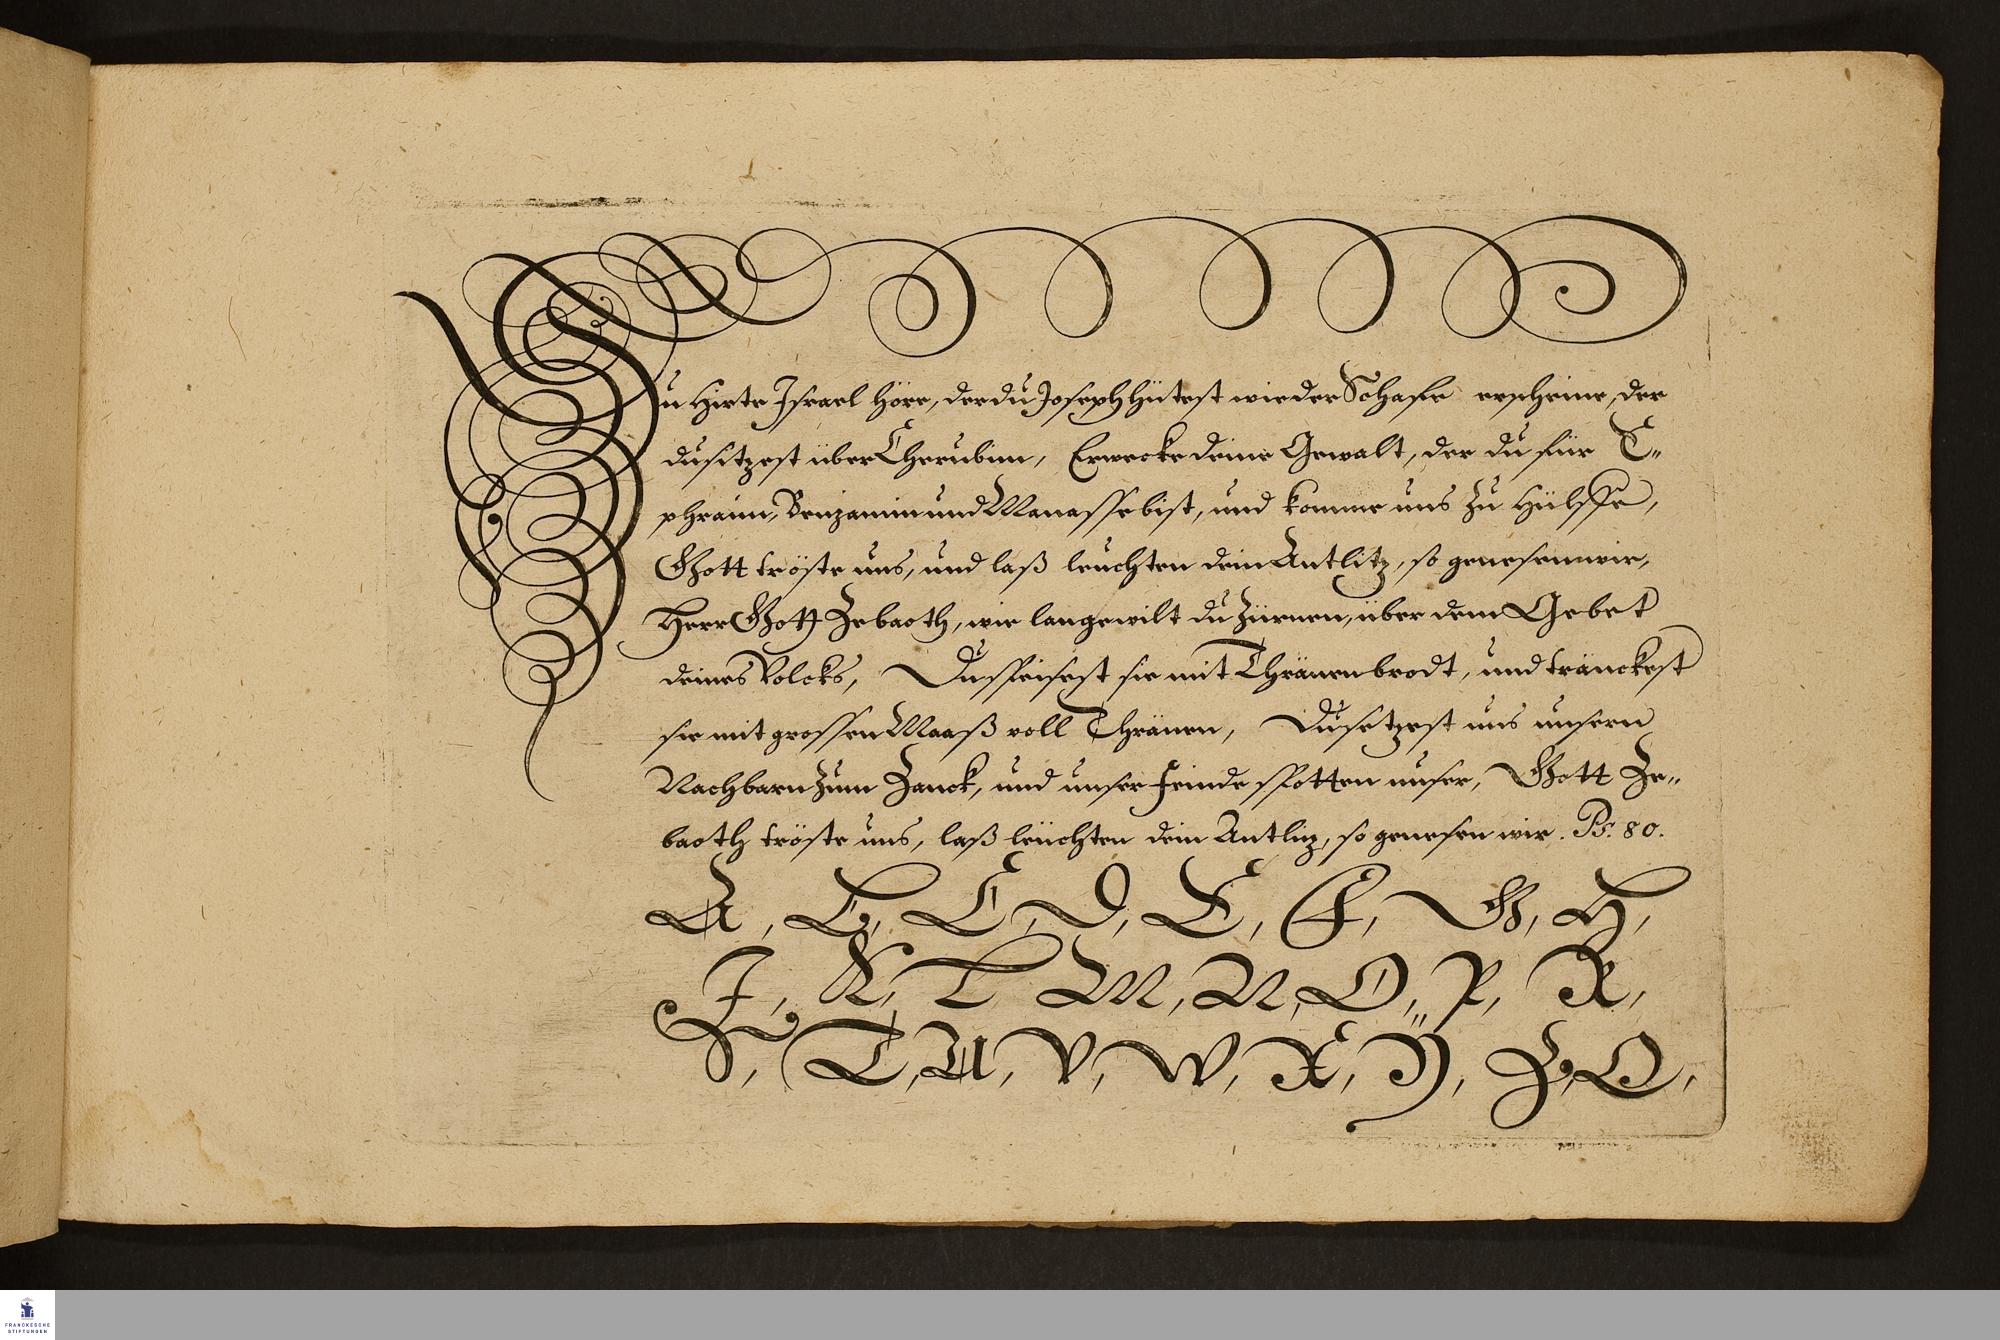 Du Hirte Israel höre, der du Joseph hütest wie der Schafe erscheine, der
du sitzest über Cherubim, Erwecke deine Gewalt, der du für E„
phraim, Benjamin und Manasse bist, und komme uns zu Hülffe,
Gott tröste uns, und laß leuchten dein Antlitz, so genesen wir,
Herr Gott Zebaoth, wie lange wilt du zürnen, über dem Gebet
deines Volcks, Du speisest sie mit Thränen brodt, und tränckest
sie mit grossen Maaß voll Thränen, Du setzest uns unsern
Nachbarn zum Zanck, und unser Feinde spotten unser, Gott Ze„
baoth tröste uns, laß leüchten dein Antlitz, so genesen wir. Ps. 80.
A, B, C, D, E, F, G, H,
I, K, L M, N, O, P, R,
S, T, U, V, W, X, Ÿ, Z, O,
FRANCKESCHE
STIFTUNGEN